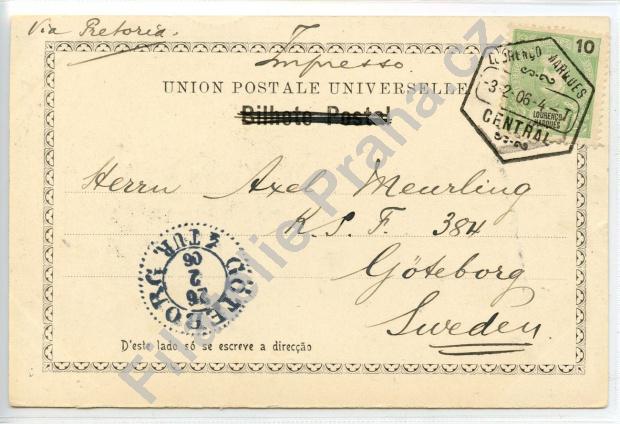 Via Pretoria.
Impresso
UNION POSTALE UNIVERSELLE
Bilhete Postal
10
LOURENÇO
MARQUES
LOURENÇO MARQUES
3-2-06-4-
CENTRAL
Herrn Axel Meurling
K. S. F. 384
Göteborg
Sweden.
GÖTEBORG
4 TUR
26
2
06
D'este lado só se escreve a direcção
Filatelie Praha.cz